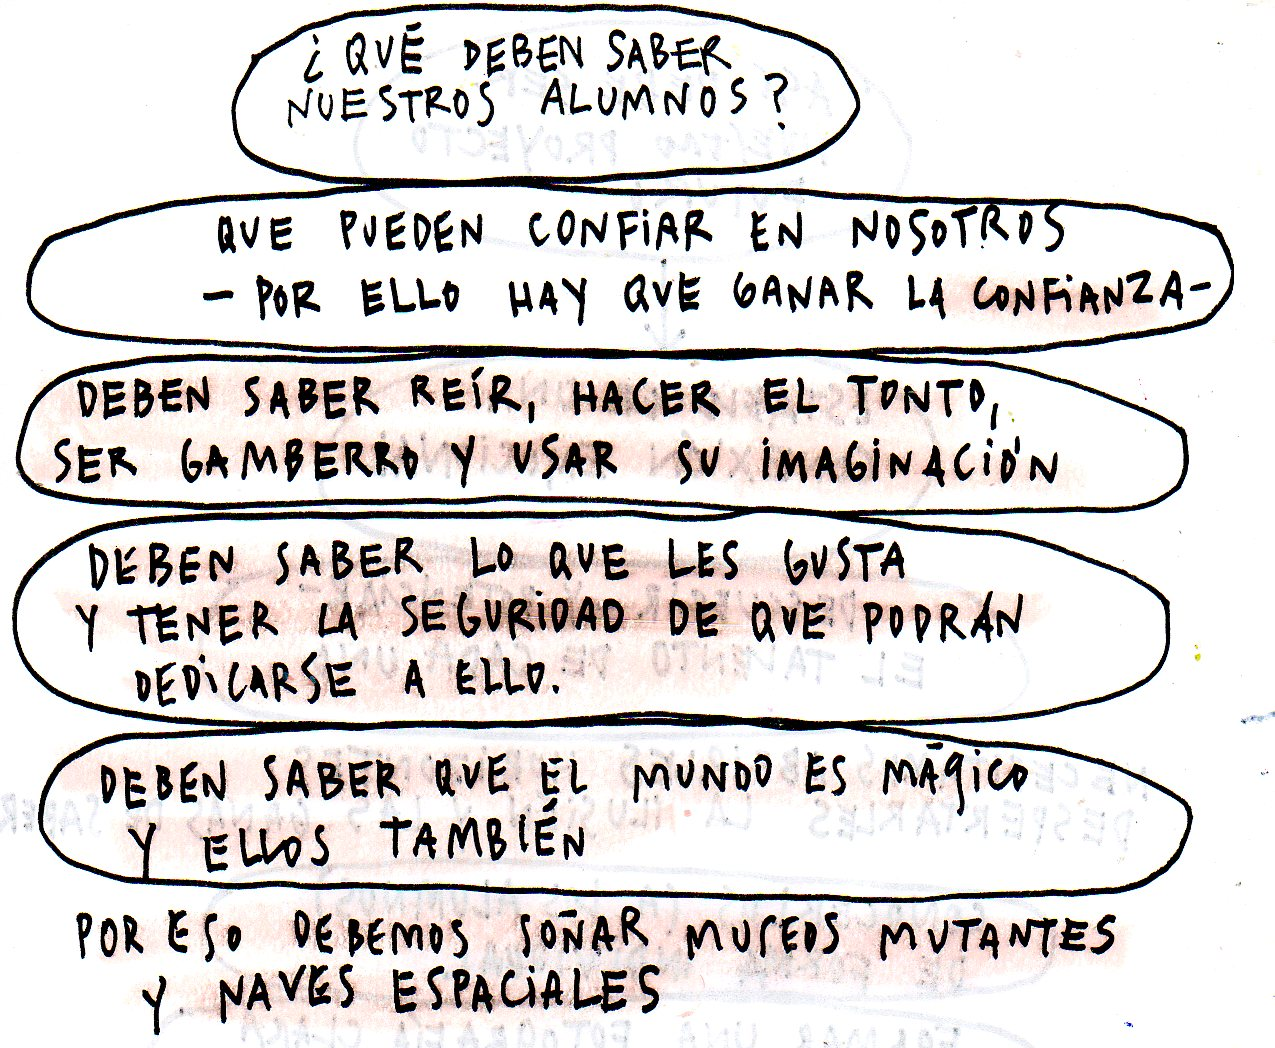 ¿QUÉ DEBEN SABER
NUESTROS ALUMNOS?
QUE PUEDEN CONFIAR EN NOSOTROS
- POR ELLO HAY QUE GANAR LA CONFIANZA -
DEBEN SABER REÍR, HACER EL TONTO,
SER GAMBERRO Y USAR SU IMAGINACIÓN
DEBEN SABER LO QUE LES GUSTA
Y TENER LA SEGURIDAD DE QUE PODRÁN
DEDICARSE A ELLO.
DEBEN SABER QUE EL MUNDO ES MÁGICO
Y ELLOS TAMBIÉN
POR ESO DEBEMOS SOÑAR MUSEOS MUTANTES
Y NAVES ESPACIALES